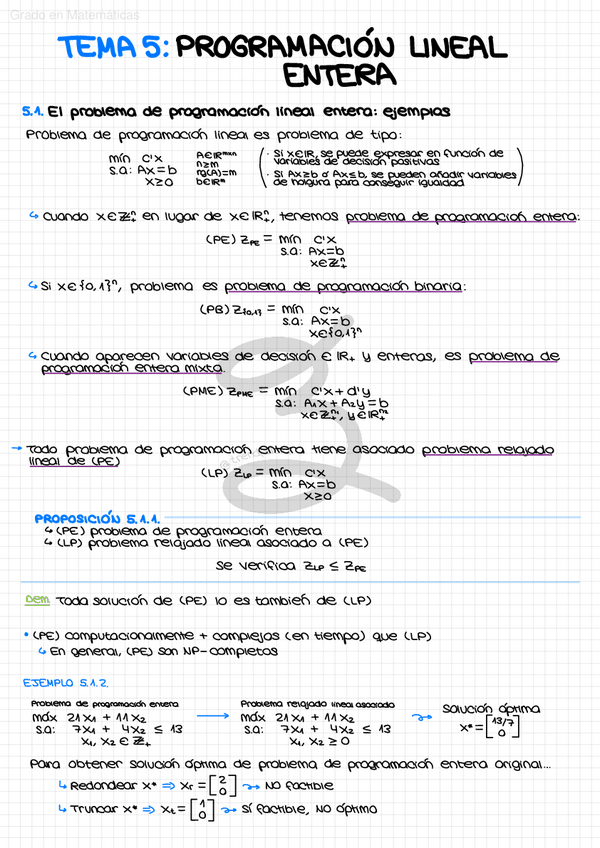 Grado en Matemáticas
TEMA 5: PROGRAMACIÓN LINEAL
ENTERA
5.1. El problema de programación lineal entera: ejemplos
Problema de programación lineal es problema de tipo:
mín c'x
s.a: Ax=b
x≥0
A∈ℝᵐˣⁿ
n≥m
rg(A)=m
b∈ℝᵐ
· Si x∈ℝ, se puede expresar en función de
variables de decisión positivas
· Si Ax≥b o Ax≤b, se pueden añadir variables
de holgura para conseguir igualdad
↳ Cuando x∈ℤ₊ⁿ en lugar de x∈ℝ₊ⁿ, tenemos problema de programación entera:
(PE) z_PE = mín c'x
s.a: Ax=b
x∈ℤ₊ⁿ
↳ Si x∈{0,1}ⁿ, problema es problema de programación binaria:
(PB) z_{0,1} = mín c'x
s.a: Ax=b
x∈{0,1}ⁿ
↳ Cuando aparecen variables de decisión ∈ ℝ₊ y enteras, es problema de
programación entera mixta.
(PME) z_PME = mín c'x + d'y
s.a: A₁x + A₂y = b
x∈ℤ₊ⁿ¹, y∈ℝ₊ⁿ²
→ Todo problema de programación entera tiene asociado problema relajado
lineal de (PE)
(LP) z_LP = mín c'x
s.a: Ax=b
x≥0
PROPOSICIÓN 5.1.1.
↳ (PE) problema de programación entera
↳ (LP) problema relajado lineal asociado a (PE)
se verifica z_LP ≤ z_PE
Dem Toda solución de (PE) lo es también de (LP)
• (PE) computacionalmente + complejas (en tiempo) que (LP)
↳ En general, (PE) son NP-completos
EJEMPLO 5.1.2.
Problema de programación entera
máx 21x₁ + 11x₂
s.a: 7x₁ + 4x₂ ≤ 13
x₁, x₂ ∈ ℤ₊
→
Problema relajado lineal asociado
máx 21x₁ + 11x₂
s.a: 7x₁ + 4x₂ ≤ 13
x₁, x₂ ≥ 0
Solución óptima
x* = [13/7 0]
Para obtener solución óptima de problema de programación entera original...
↳ Redondear x* ⇒ xᵣ = [2 0] → NO factible
↳ Truncar x* ⇒ xₜ = [1 0] → Sí factible, NO óptimo